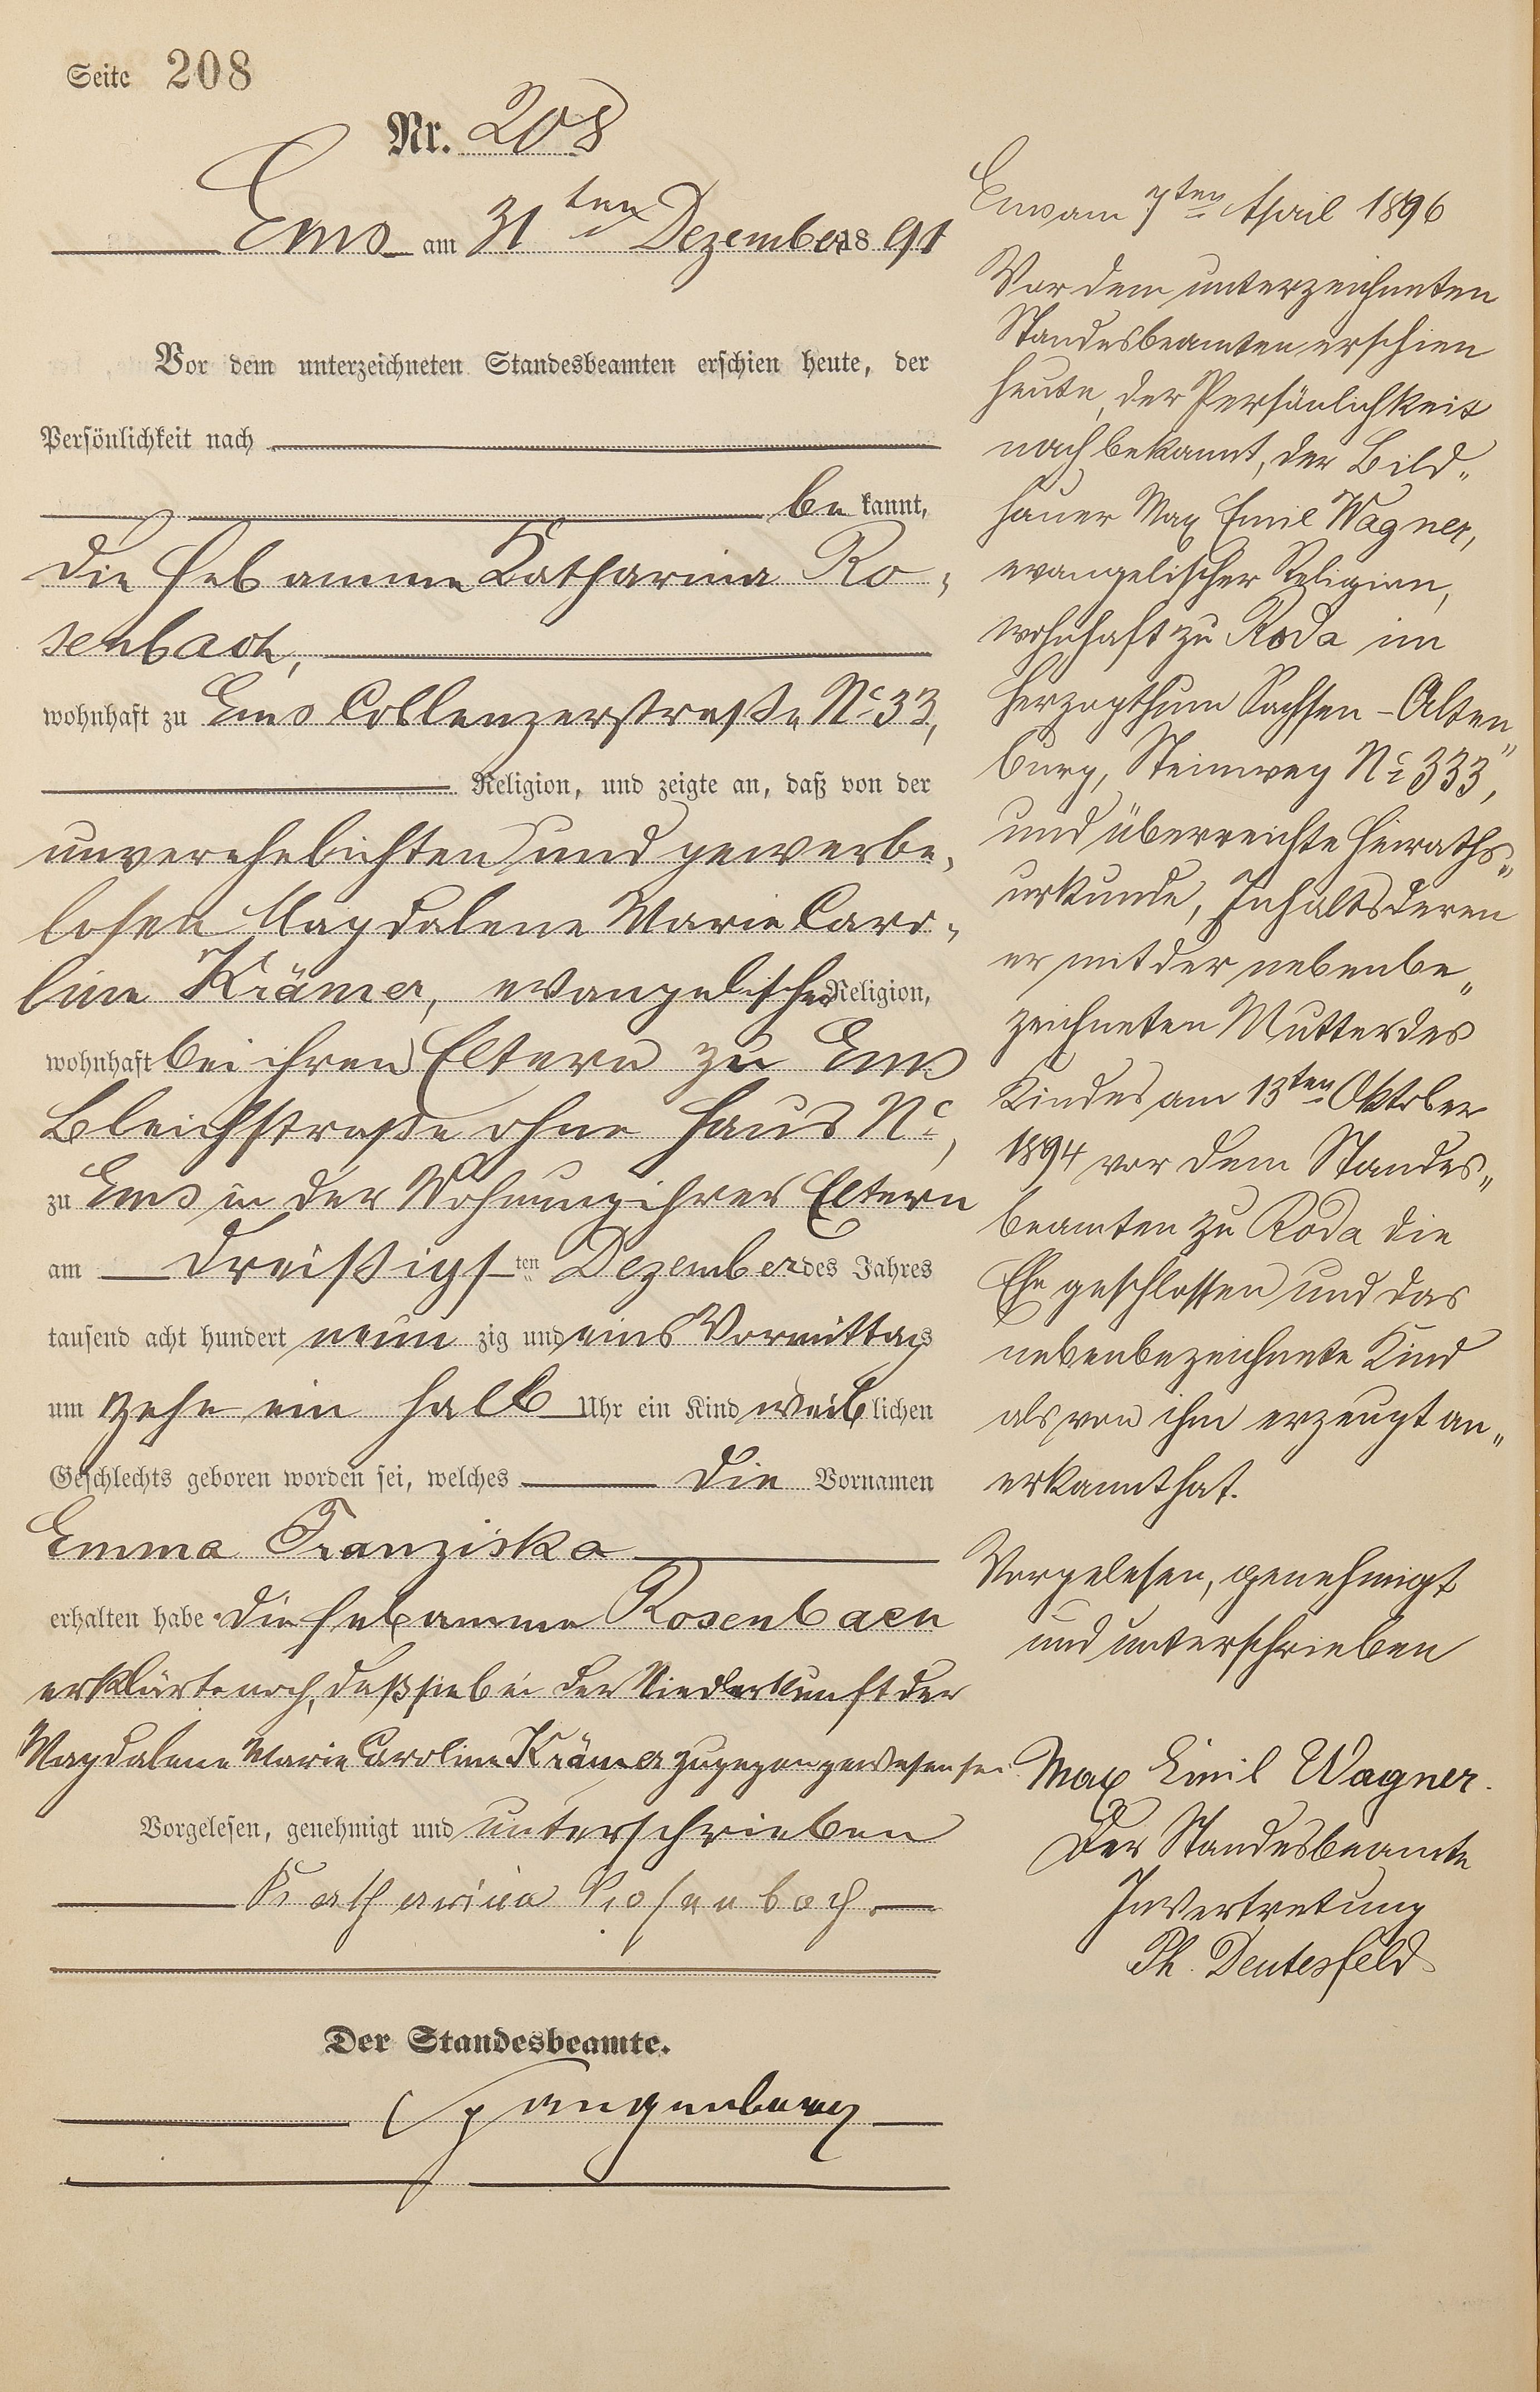 Seite 208
Nr. 208
Ems am 31ten Dezember 1891
Vor dem unterzeichneten Standesbeamten erschien heute, der
Persönlichkeit nach
be kannt,
die Hebamme Katharina Ro-
senbach,
wohnhaft zu Ems Coblenzerstraße No 33,
Religion, und zeigte an, daß von der
unverehelichten und gewerbe-
losen Magdalene Marie Caro-
line Krämer, evangelischer Religion,
wohnhaft bei ihren Eltern zu Ems
Bleichstraße ohne Haus No,
zu Ems in der Wohnung ihrer Eltern
am dreißigsten Dezember des Jahres
tausend acht hundert neun zig und eins Vormittags
um zehn ein halb Uhr ein Kind weiblichen
Geschlechts geboren worden sei, welches die Vornamen
Emma Franziska
erhalten habe. Die Hebamme Rosenbach
erklärte noch, daß sie bei der Niederkunft der
Magdalene Marie Caroline Krämer zugegen gewesen sei.
Vorgelesen, genehmigt und unterschrieben
Katharina Rosenbach.
Der Standesbeamte.
Ems am 7ten April 1896
Vor dem unterzeichneten
Standesbeamten erschien
heute, der Persönlichkeit
nach bekannt, der Bild-
hauer Max Emil Wagner,
evangelischer Religion,
wohnhaft zu Roda im
Herzogthum Sachsen-Alten-
burg, Steinweg No 333,
und überreichte Heiraths-
urkunde, Inhalts deren
er mit der nebenbe-
zeichneten Mutter des
Kindes am 13ten Oktober
1894 vor dem Standes-
beamten zu Roda die
Ehe geschlossen und das
nebenbezeichnete Kind
als von ihm erzeugt an-
erkannt hat.
Vorgelesen, genehmigt
und unterschrieben
Max Emil Wagner.
Der Standesbeamte
In Vertretung
Ph. Deutesfeld